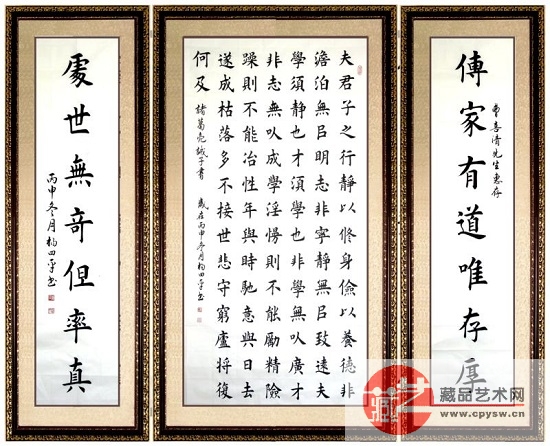 傳家有道唯存厚
喜清先生惠存
夫君子之行靜以修身儉以養德非
澹泊無㠯明志非寧靜無㠯致遠夫
學須靜也才須學也非學無㕥廣才
非志無㕥成學淫慢則不能勵精險
躁則不能冶性年與時馳意與日去
遂成枯落多不接世悲守窮廬將復
何及 諸葛亮誡子書 歲在丙申冬月
處世無奇但率真
丙申冬月
藏品艺术网
www.cpysw.cn